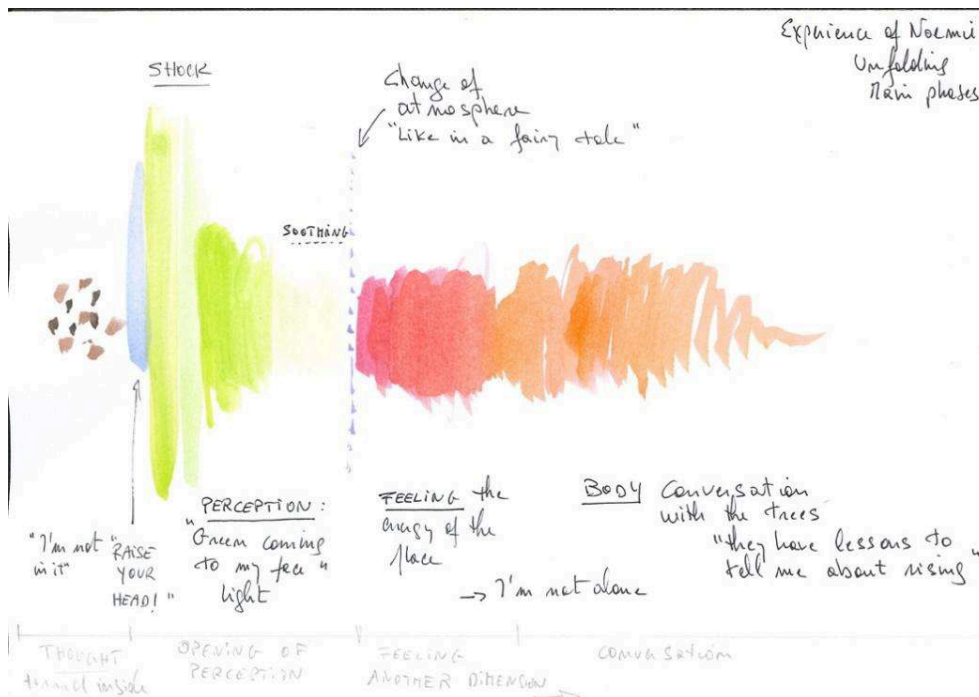 Experience of Noemie
Unfolding
Main phases
SHOCK
Change of
atmosphere
"Like in a fairy tale"
SOOTHING
"I'm not
in it"
"RAISE
YOUR
HEAD!"
PERCEPTION:
"Green coming
to my face"
light
FEELING the
energy of the
place
→ I'm not alone
BODY Conversation
with the trees
"they have lessons to
tell me about rising"
THOUGHT
turned inside
OPENING OF
PERCEPTION
FEELING
ANOTHER DIMENSION
CONVERSATION